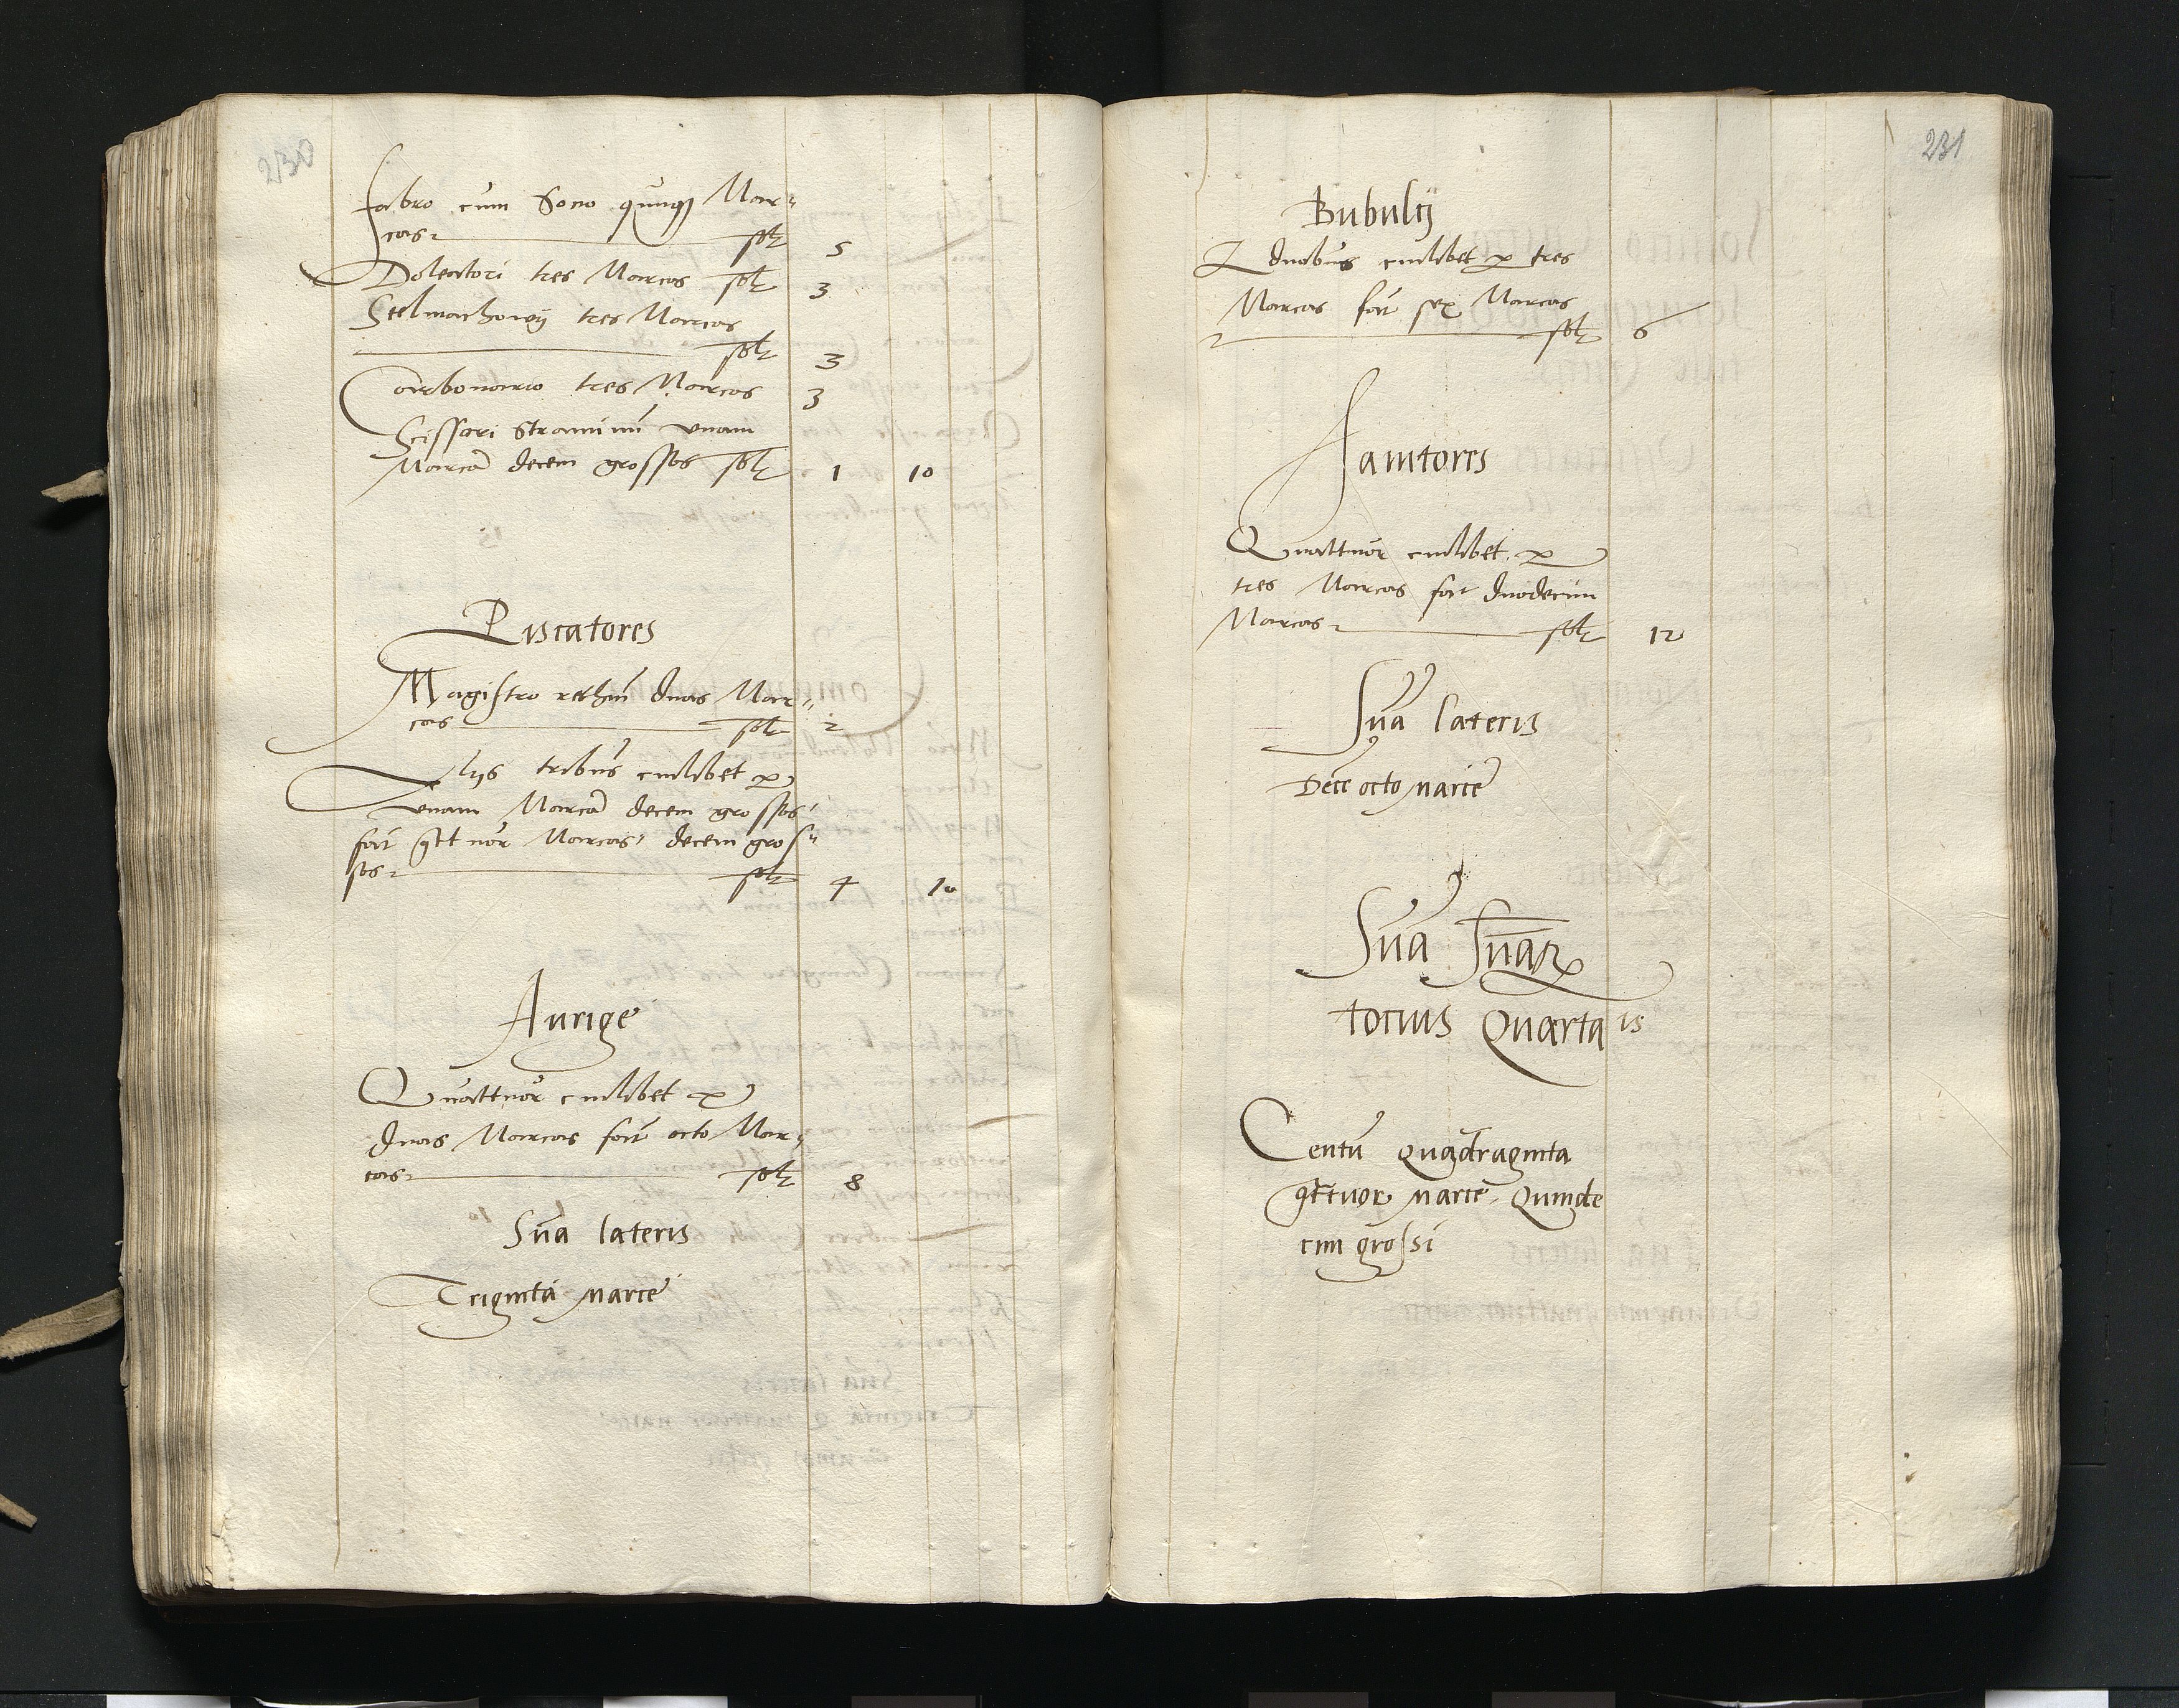 230
Fabro cum Socio quinq3 Mar„
cas solt 5
Doleatori tres Marcas solt 3
Stelmachowij tres Marcas
solt 3
Carbonario tres Marcas 3
Scissori Straminū vnam
Marcā decem grossos solt 1 10
Piscatores
Magistro rethiū duas Mar„
cas solt 2
Alijs tribus cuilibet p
vnam Marcā decem grossos
fat qttuor Marcas decem gros„
sos solt 4 10
Aurige
Quattuor cuilibet p
duas Marcas fat octo Mar„
cas solt 8
Sua lateris
Triginta marce
231
Bubulcij
duobus cuilibet p tres
Marcas fat sex Marcas
solt 6
Janitores
Quattuor cuilibet p
tres Marcas fat duodecim
Marcas solt 12
Sūa lateris
Dece octo marce
Sūa sūaꝝ
tocius Quartalis
Centū quadraginta
qttuor marce Quinde
cim grossi